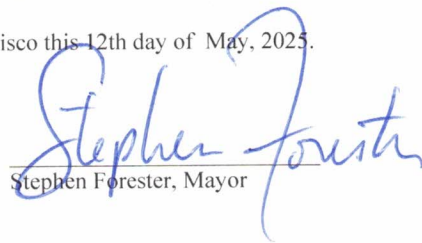 isco this 12th day of May, 2025.
Stephen Forester
Stephen Forester, Mayor